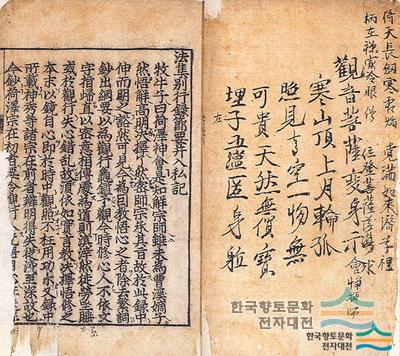 倚天長釰寒
觀音菩薩變身示
寒山頂上月輪孤
照見空一物無
可貴天然無價寶
埋子五蘊匿身躯
左
法集別行錄節要并入私記
牧牛子曰荷澤神會是知解宗師雖未為曹溪嫡子
然悟解高明決擇了然密師宗承其旨故於此錄中
伸而明之豁然可見今為因教悟心之者除去繁詞
鈔出綱要以為觀行龜鑑予觀今時修心人不依文
字指歸直以密意相傳處為道則溟涬然徒勞坐睡
或於觀行失心錯亂故須依如實言教決擇悟修之
本末以鏡自心即於時中觀照不枉用功尒又錄中
所載神秀等諸宗在前者辨明得失從淺至深故也
今鈔荷澤宗在初者要令觀行人先悟自心
한국향토문화
전자대전
한국향토문화
전자대전